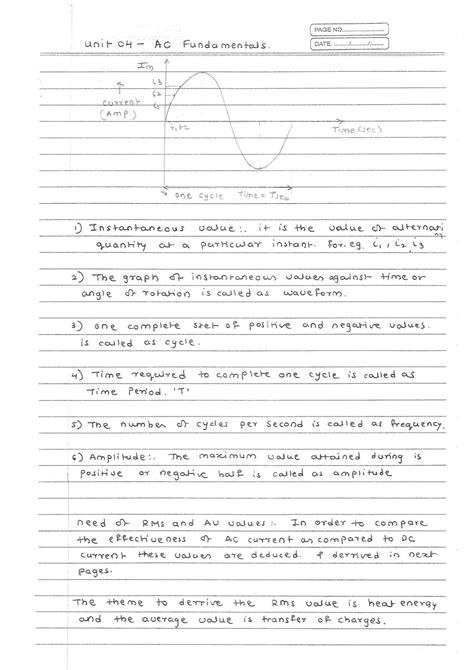 PAGE NO.
DATE: ......./......./.......
Unit 04 - AC Fundamentals.
Im
i3
i2
Current i1
(Amp.)
t1 t2
Time (sec)
one cycle Time = Tsec
1) Instantaneous value :. it is the value of alternating
quantity at a particular instant. for.eg. i1, i2 i3
2) The graph of instantaneous values against time or
angle of rotation is called as waveform.
3) one complete set of positive and negative values.
is called as cycle.
4) Time required to complete one cycle is called as
Time Period. 'T'
5) The number of cycles per second is called as frequency.
6) Amplitude :. The maximum value attained during is
positive or negative half is called as amplitude
need of RMS and AV values :. In order to compare
the effectiveness of AC current as compared to DC
current these values are deduced. & derrived in next
pages.
The theme to derrive the RMS value is heat energy
and the average value is transfer of charges.